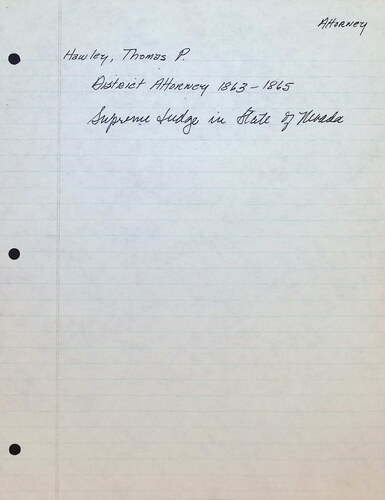 Attorney
Hawley, Thomas P.
District Attorney 1863-1865
Supreme Judge in State of Nevada